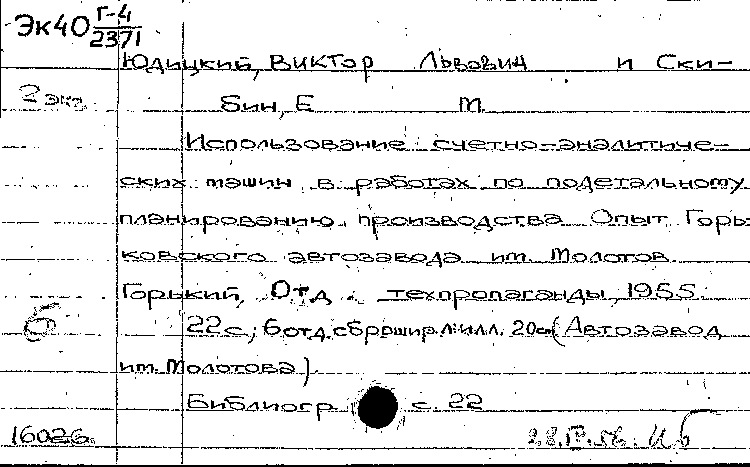 Эк40 Г-4
2371
Юдицкий, Виктор Львович и Ски-
2 экз.
бин, Е М.
Использование счетно-аналитиче-
ских машин в работах по подетальному
планированию производства Опыт Горь-
ковского автозавода им. Молотов
Горький, Отд. техпропаганды, 1955.
22 с.; 6 отд. сброшир. л. илл. 20 см (Автозавод
б
им. Молотова)
Библиогр с. 22
16026.
28.IV.56. Иб